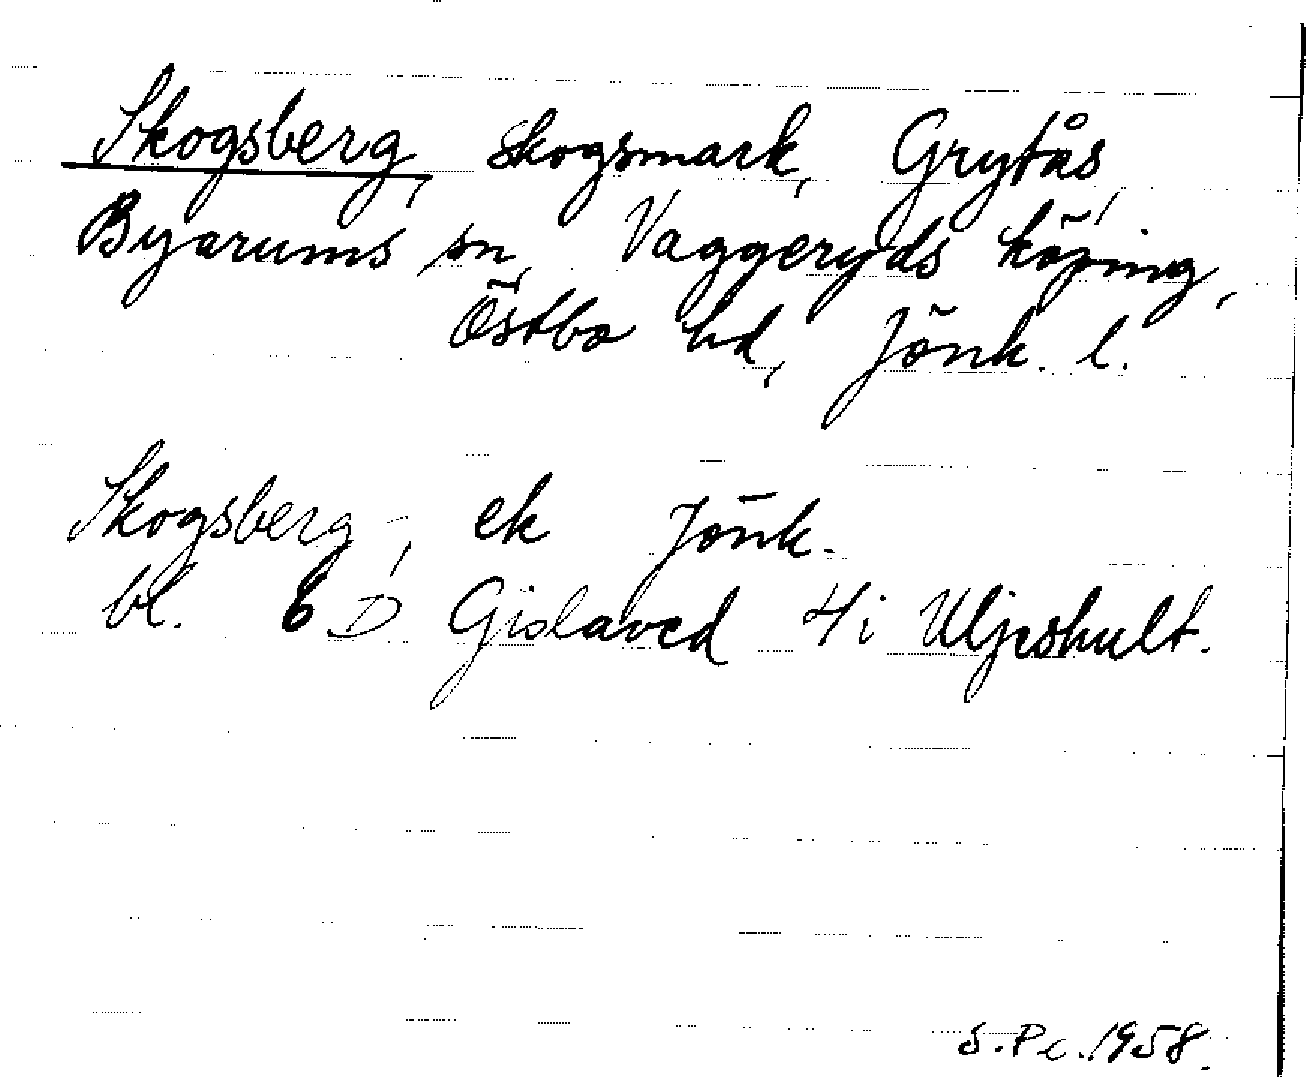 Skogsberg, skogsmark, Grytås,
Byarums sn, Vaggeryds köping,
Östbo hd, Jönk. l.
Skogsberg -, ek Jönk.
bl. 6 D Gislaved 4i Uljeshult.
S. Pe. 1958.